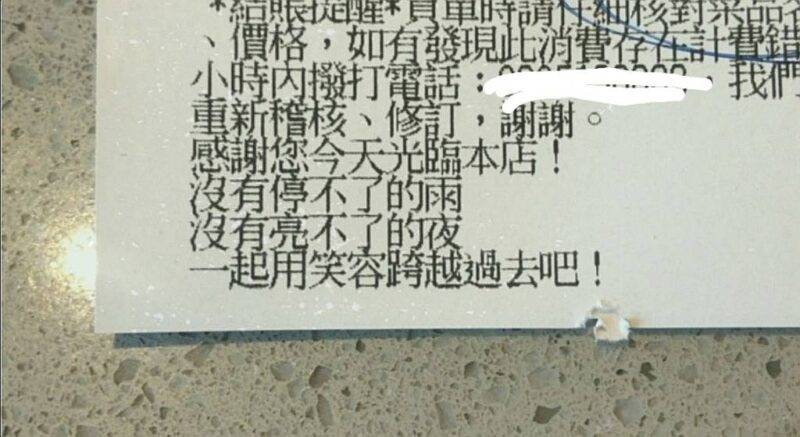 *結帳提醒*買單時請仔細核對菜品名
、價格，如有發現此消費存在計費錯
小時內撥打電話：，我們
重新稽核、修訂，謝謝。
感謝您今天光臨本店！
沒有停不了的雨
沒有亮不了的夜
一起用笑容跨越過去吧！